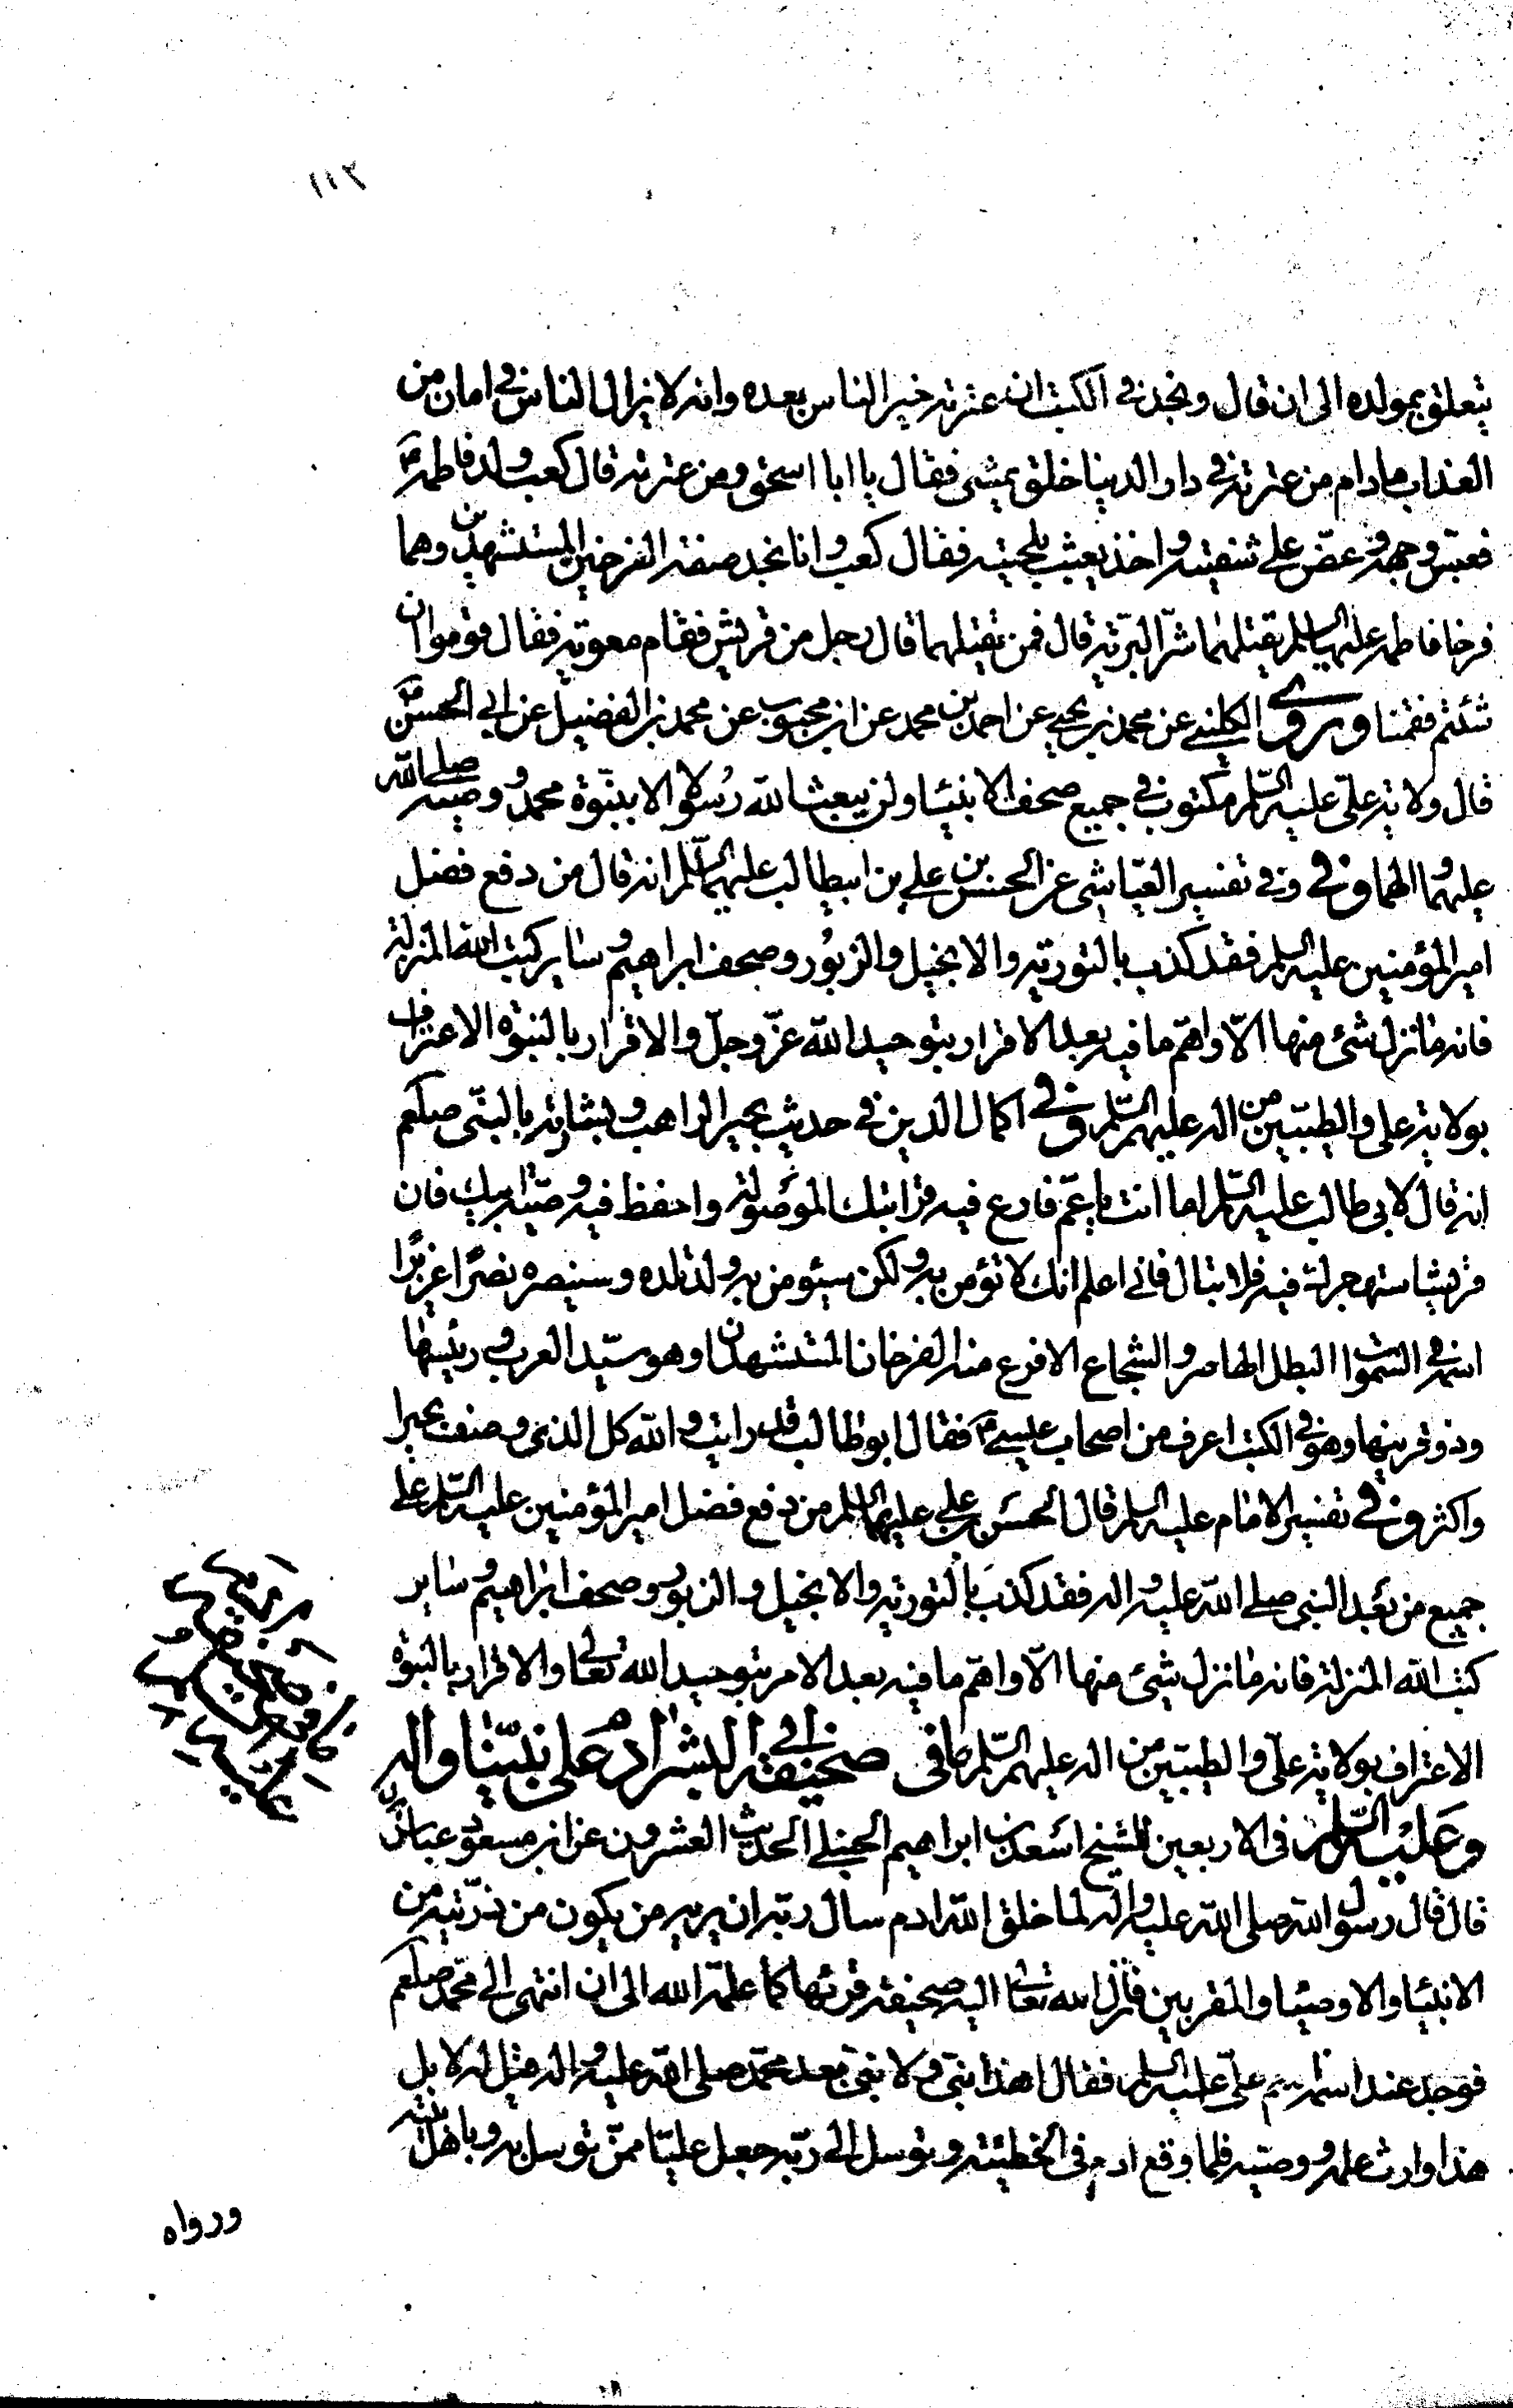 ١١٣
يتعلق بمولده الى ان قال ونجد في الكتب ان عترته خير الناس بعده وانه لا يزال الناس في امان من
العذاب مادام من عترته في دار الدنيا خلق يمشي فقال يا ابا اسحق ومن عترته قال كعب ولد فاطمة ع
فعبس وجهه وعض على شفتيه واخذ يعبث بلحيته فقال كعب وانا نجد صفة الفرخين المستشهدين وهما
فرخا فاطمه عليها السلم يقتلهما شر البرية قال فمن يقتلهما قال رجل من قريش فقام معوية فقال قوموا ان
شئتم فقمنا وروى الكليني عن محمد بن يحيى عن احمد بن محمد عن ابن محبوب عن محمد بن الفضيل عن ابي الحسن ع
قال ولاية علي عليه السلم مكتوب في جميع صحف الانبياء ولن يبعث الله رسولا الا بنبوة محمد ووصيه صلى الله
عليهما والهما وفي تفسير العياشي عن الحسن بن علي بن ابيطالب عليهما السلم انه قال من دفع فضل
امير المؤمنين عليه السلم فقد كذب بالتورية والانجيل والزبور وصحف ابراهيم وساير كتب الله المنزلة
فانه ما نزل شئ منها الا واهم ما فيه بعد الاقرار بتوحيد الله عز وجل والاقرار بالنبوة الاعتراف
بولاية علي والطيبين من اله عليهم السلم وفي اكمال الدين في حديث بحير الراهب وبشارته بالنبي صلعم
انه قال لابي طالب عليه السلم اما انت يا عم فارع فيه قرابتك الموصولة واحفظ فيه وصية ابيك فان
قريشا ستهجرك فيه فلا تبال فاني اعلم انك لا تؤمن به ولكن سيؤمن به ولد تلده وسينصره نصرا عزيزا
اسمه في السموات البطل الهاصر والشجاع الاقرع منه الفرخان المستشهدان وهو سيد العرب ورئيسها
وذو قرنيها وهو في الكتب اعرف من اصحاب عيسى ع فقال ابو طالب قد رايت والله كل الذي وصفه بحيرا
واكثر وفي تفسير الامام عليه السلم قال الحسن بن علي عليهما السلم من دفع فضل امير المؤمنين عليه السلم على
جميع من بعد النبي صلى الله عليه واله فقد كذب بالتورية والانجيل والزبور وصحف ابراهيم وساير
كتب الله المنزلة فانه ما نزل شيئ منها الا واهم ما فيه بعد الامر بتوحيد الله تعالى والاقرار بالنبوة
الاعتراف بولاية علي والطيبين من اله عليهم السلم ما في صحيفة ابي البشر ادم على نبينا واله
وعليه السلم في الاربعين للشيخ اسعد بن ابراهيم الحنبلي الحديث العشرون عن ابن مسعود
قال قال رسول الله صلى الله عليه واله لما خلق الله ادم سال ربه ان يريه من يكون من ذريته من
الانبياء والاوصياء والمقربين فانزل الله تعالى اليه صحيفة فقرئها كما علمه الله الى ان انتهى الى محمد صلعم
فوجد عند اسمه اسم علي عليه السلم فقال هذا نبي ولا نبي بعد محمد صلى الله عليه واله قيل له لا بل
هذا وارث علمه ووصيه فلما وقع ادم في الخطيئة وتوسل الى ربه جعل عليا ممن توسل به وباهل بيته
ورواه